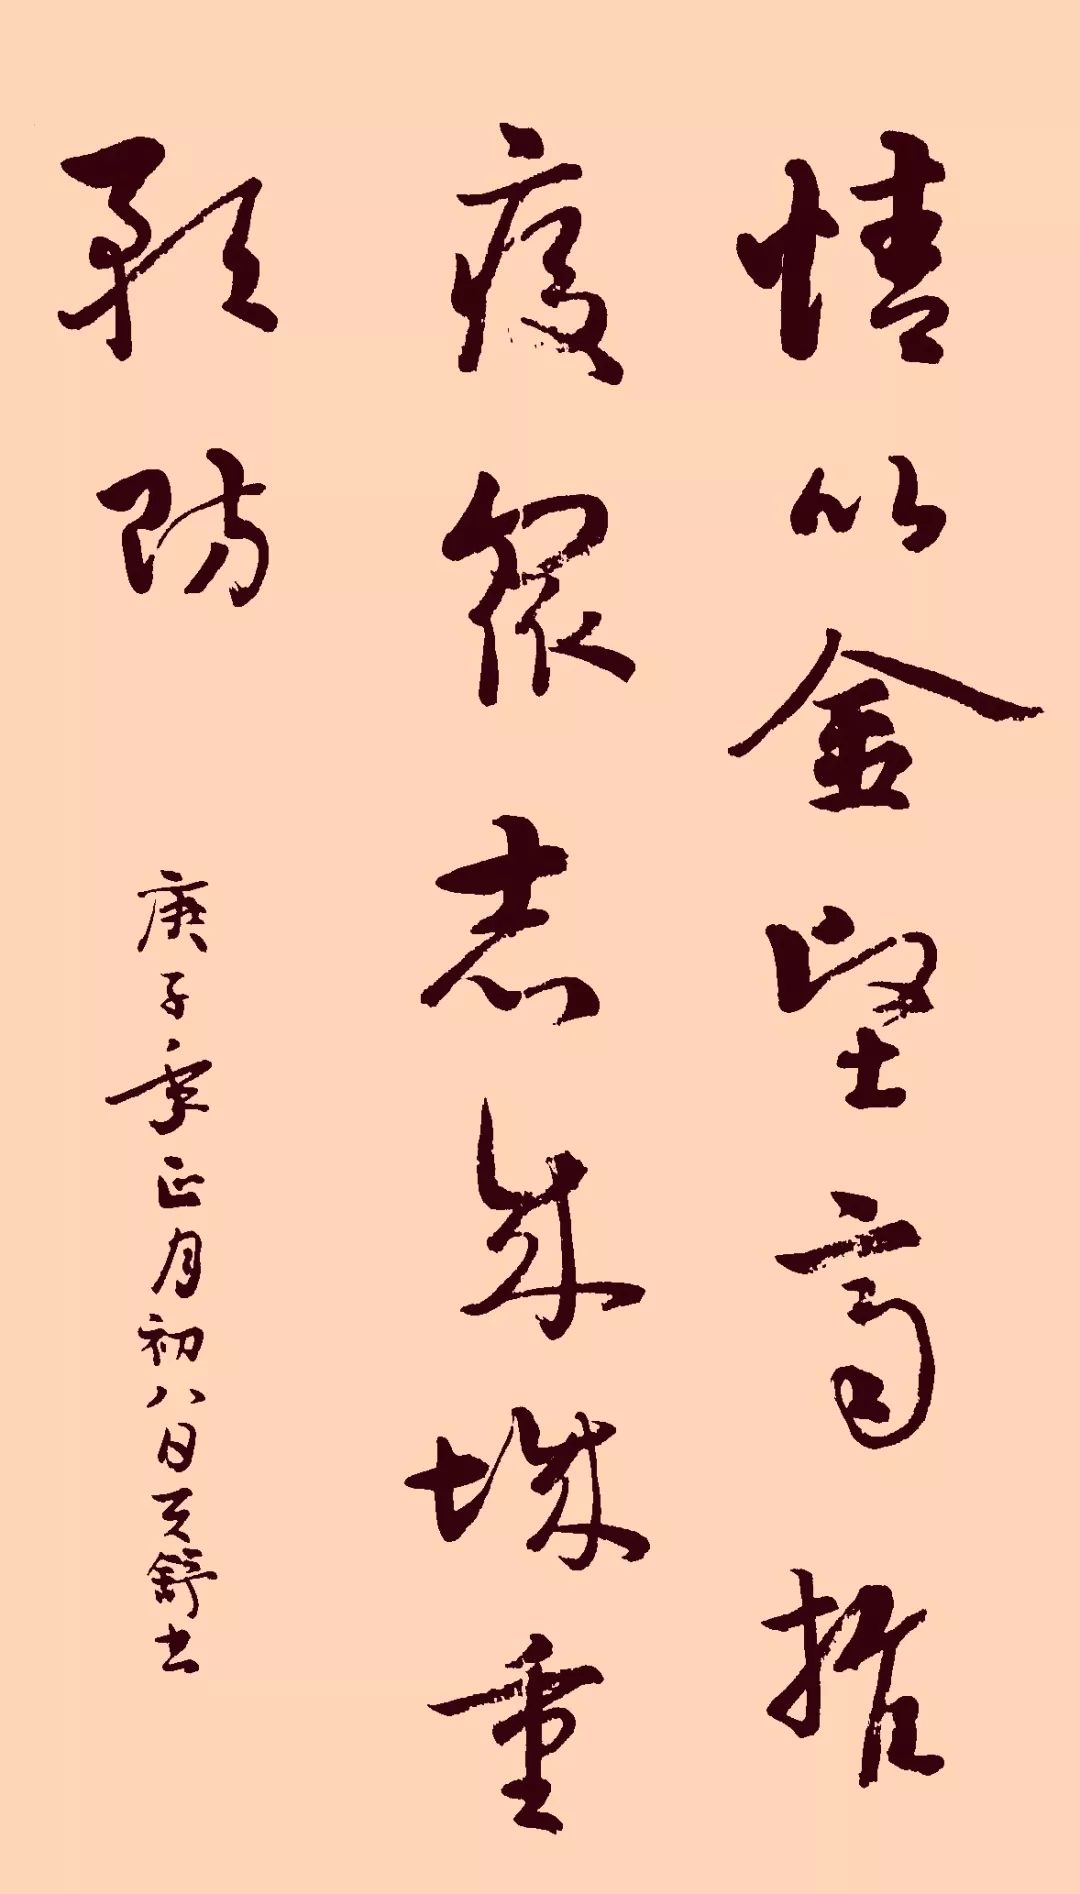 情以金堅高
疫眾志成城重
預防
庚子年正月初八日天舒书